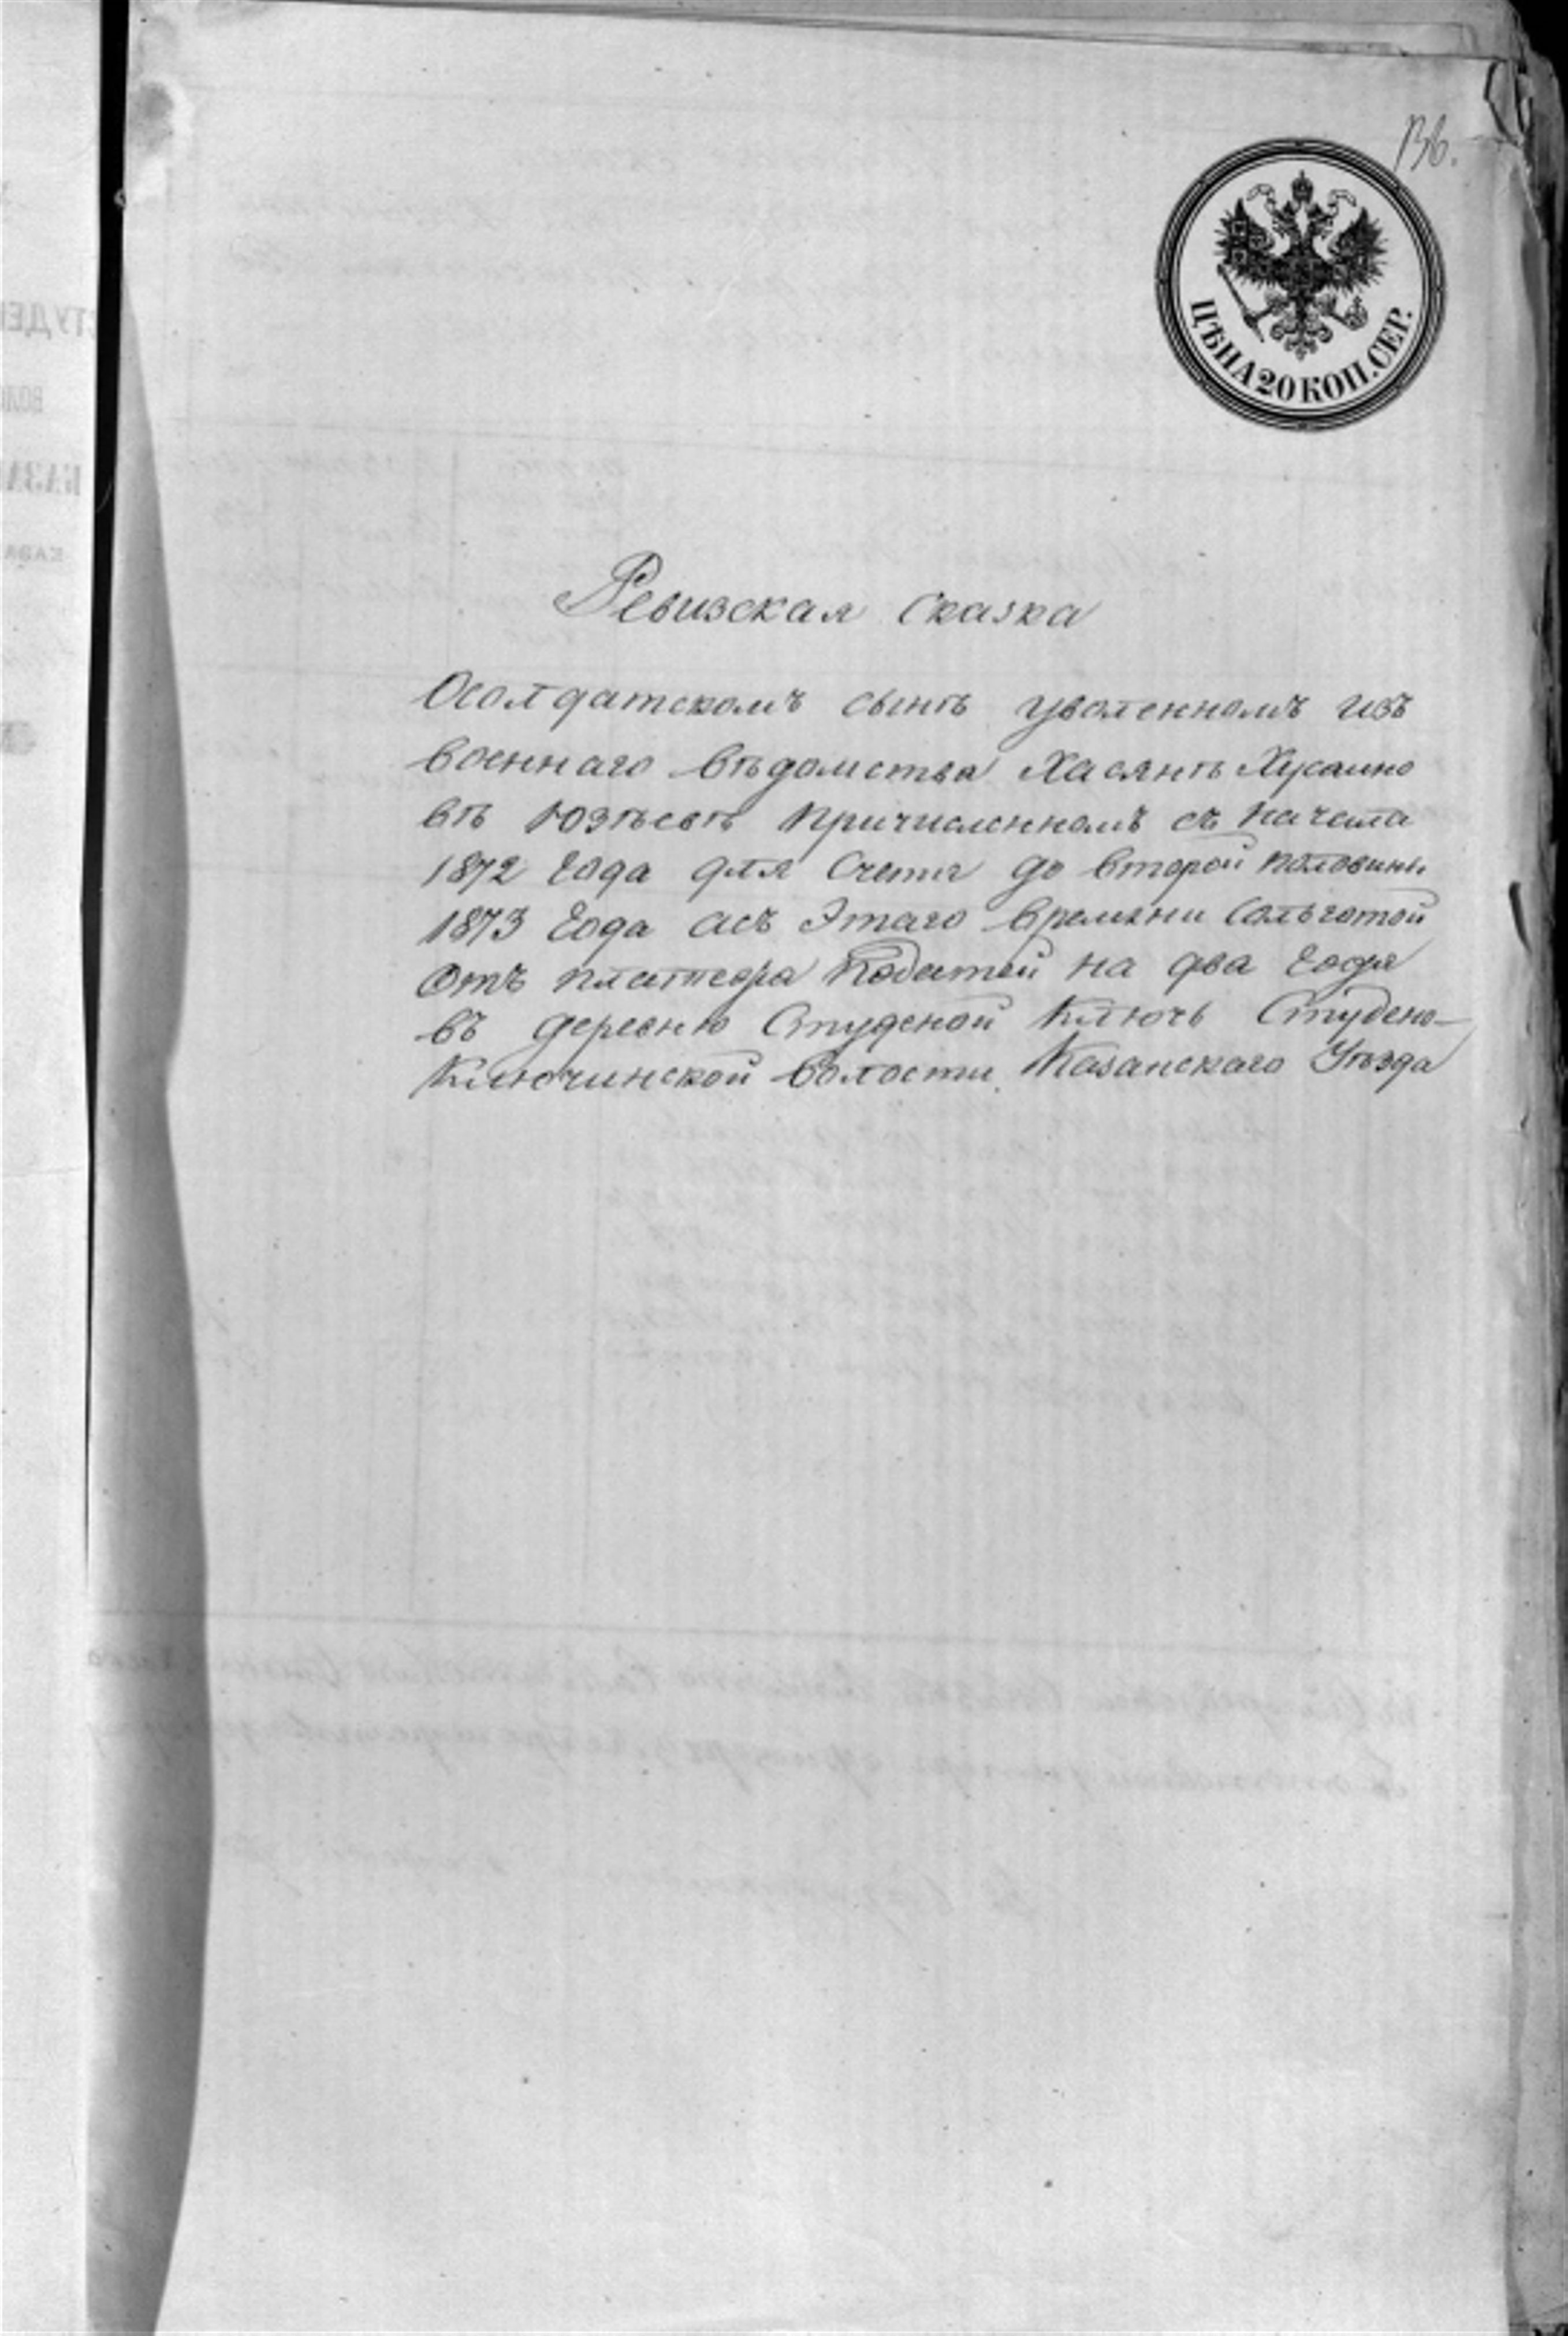 136.
ЦѢНА 20 КОП. СЕР.
Ревизская сказка
Осолдатскомъ сынѣ уволенномъ изъ
военнаго вѣдомства Хасянѣ Хусаино
вѣ Юзѣевѣ причисленномъ съ начала
1872 года для счета до второй половины
1873 года асъ Этаго времяни сольготой
отъ платежа податей на два года
въ деревню Студеной Ключь Студено-
Ключинской волости Казанскаго Уѣзда